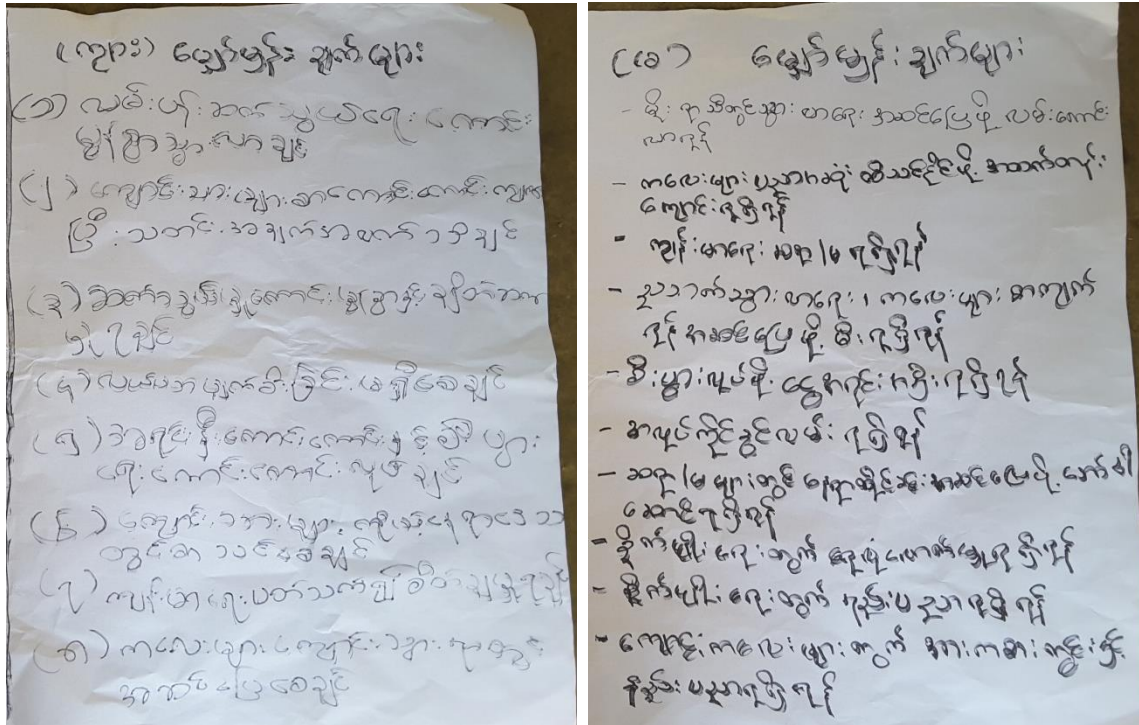 (ကျား) မျှော်မှန်း ချက်များ
(၁) လမ်းပန်းဆက်သွယ်ရေး ကောင်း
မွန်စွာသွားလာချင်
(၂) ကျောင်းသားများစာကောင်းကောင်းကျက်
ပြီး သတင်းအချက်အလက်ရရှိချင်
(၃)
(၄) လယ်မပျက်စီးခြင်း မရှိစေချင်
(၅) အရင်းအနှီးကောင်းကောင်းနှင့် စီးပွား
ရေးကောင်းကောင်းလုပ်ချင်
(၆) ကျောင်းသားများ ကိုယ့်နေရာဒေသ
တွင်စာသင်စေချင်
(၇) ကျန်းမာရေးပတ်သက်၍
(၈) ကလေးများ ကျောင်းသွားရာတွင်
အဆင်ပြေစေချင်
(မ) မျှော်မှန်းချက်များ
- မိုးရာသီတွင်သွားလာရေးအဆင်ပြေဖို့ လမ်းကောင်း
လာရန်
- ကလေးများ ပညာဆုံးခန်းသင်နိုင်ဖို့ အထက်တန်း
ကျောင်းရရှိရန်
- ကျန်းမာရေး ဆရာ/မ ရရှိရန်
- ညဘက်သွားလာရေး၊ ကလေးများ စာကျက်
ရန် အဆင်ပြေဖို့ မီးရရှိရန်
- စီးပွားလုပ်ဖို့ ငွေအရင်းအနှီးရရှိရန်
- အလုပ်ကိုင်ခွင်လမ်း ရရှိရန်
- ဆရာ/မများတွင် နေရာထိုင်ခင်းအဆင်ပြေဖို့ ဘော်ဒါ
ဆောင်ရရှိရန်
- စိုက်ပျိုးရေးတွက် ရေလုံလောက်မှုရရှိရန်
- စိုက်ပျိုးရေးတွက် နည်းပညာရရှိရန်
- ကျောင်းကလေးများတွက် အားကစားကွင်းနှင့်
နည်းပညာရရှိရန်